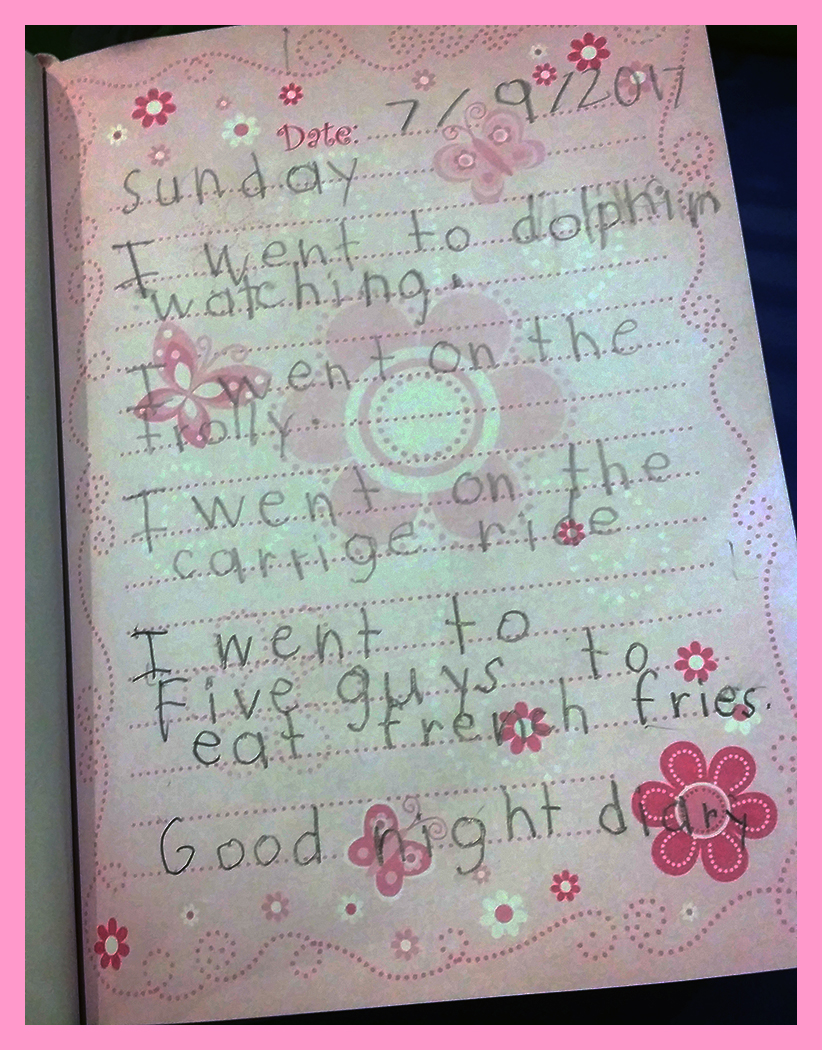 Date: 7/9/2017
sunday
I went to dolphin
watching.
I went on the
trolly.
I went on the
carrige ride
I went to
Five guys to
eat french fries.
Good night diary